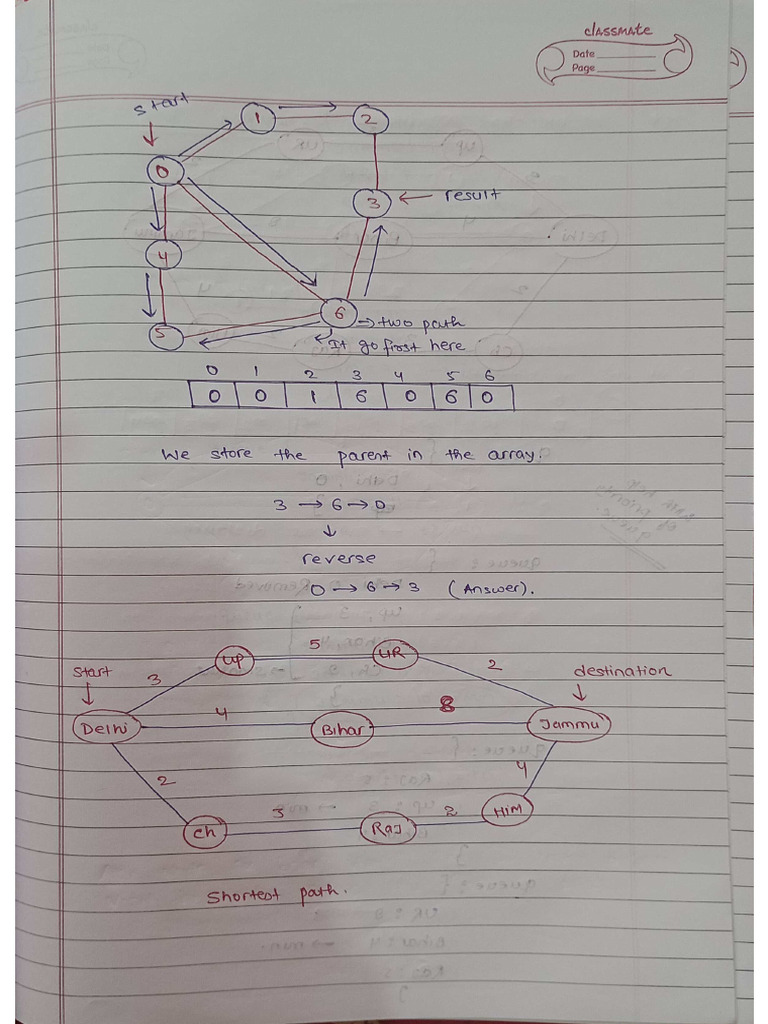 classmate
Date
Page
start
1
2
0
3
result
4
6
two path
5
It go first here
0 1 2 3 4 5 6
0 0 1 6 0 6 0
We store the parent in the array.
3 → 6 → 0
↓
reverse
0 → 6 → 3 (Answer).
start
UP
5
UR
2
destination
3
Delhi
4
Bihar
8
Jammu
2
4
Ch
3
Raj
2
HiM
Shortest path.